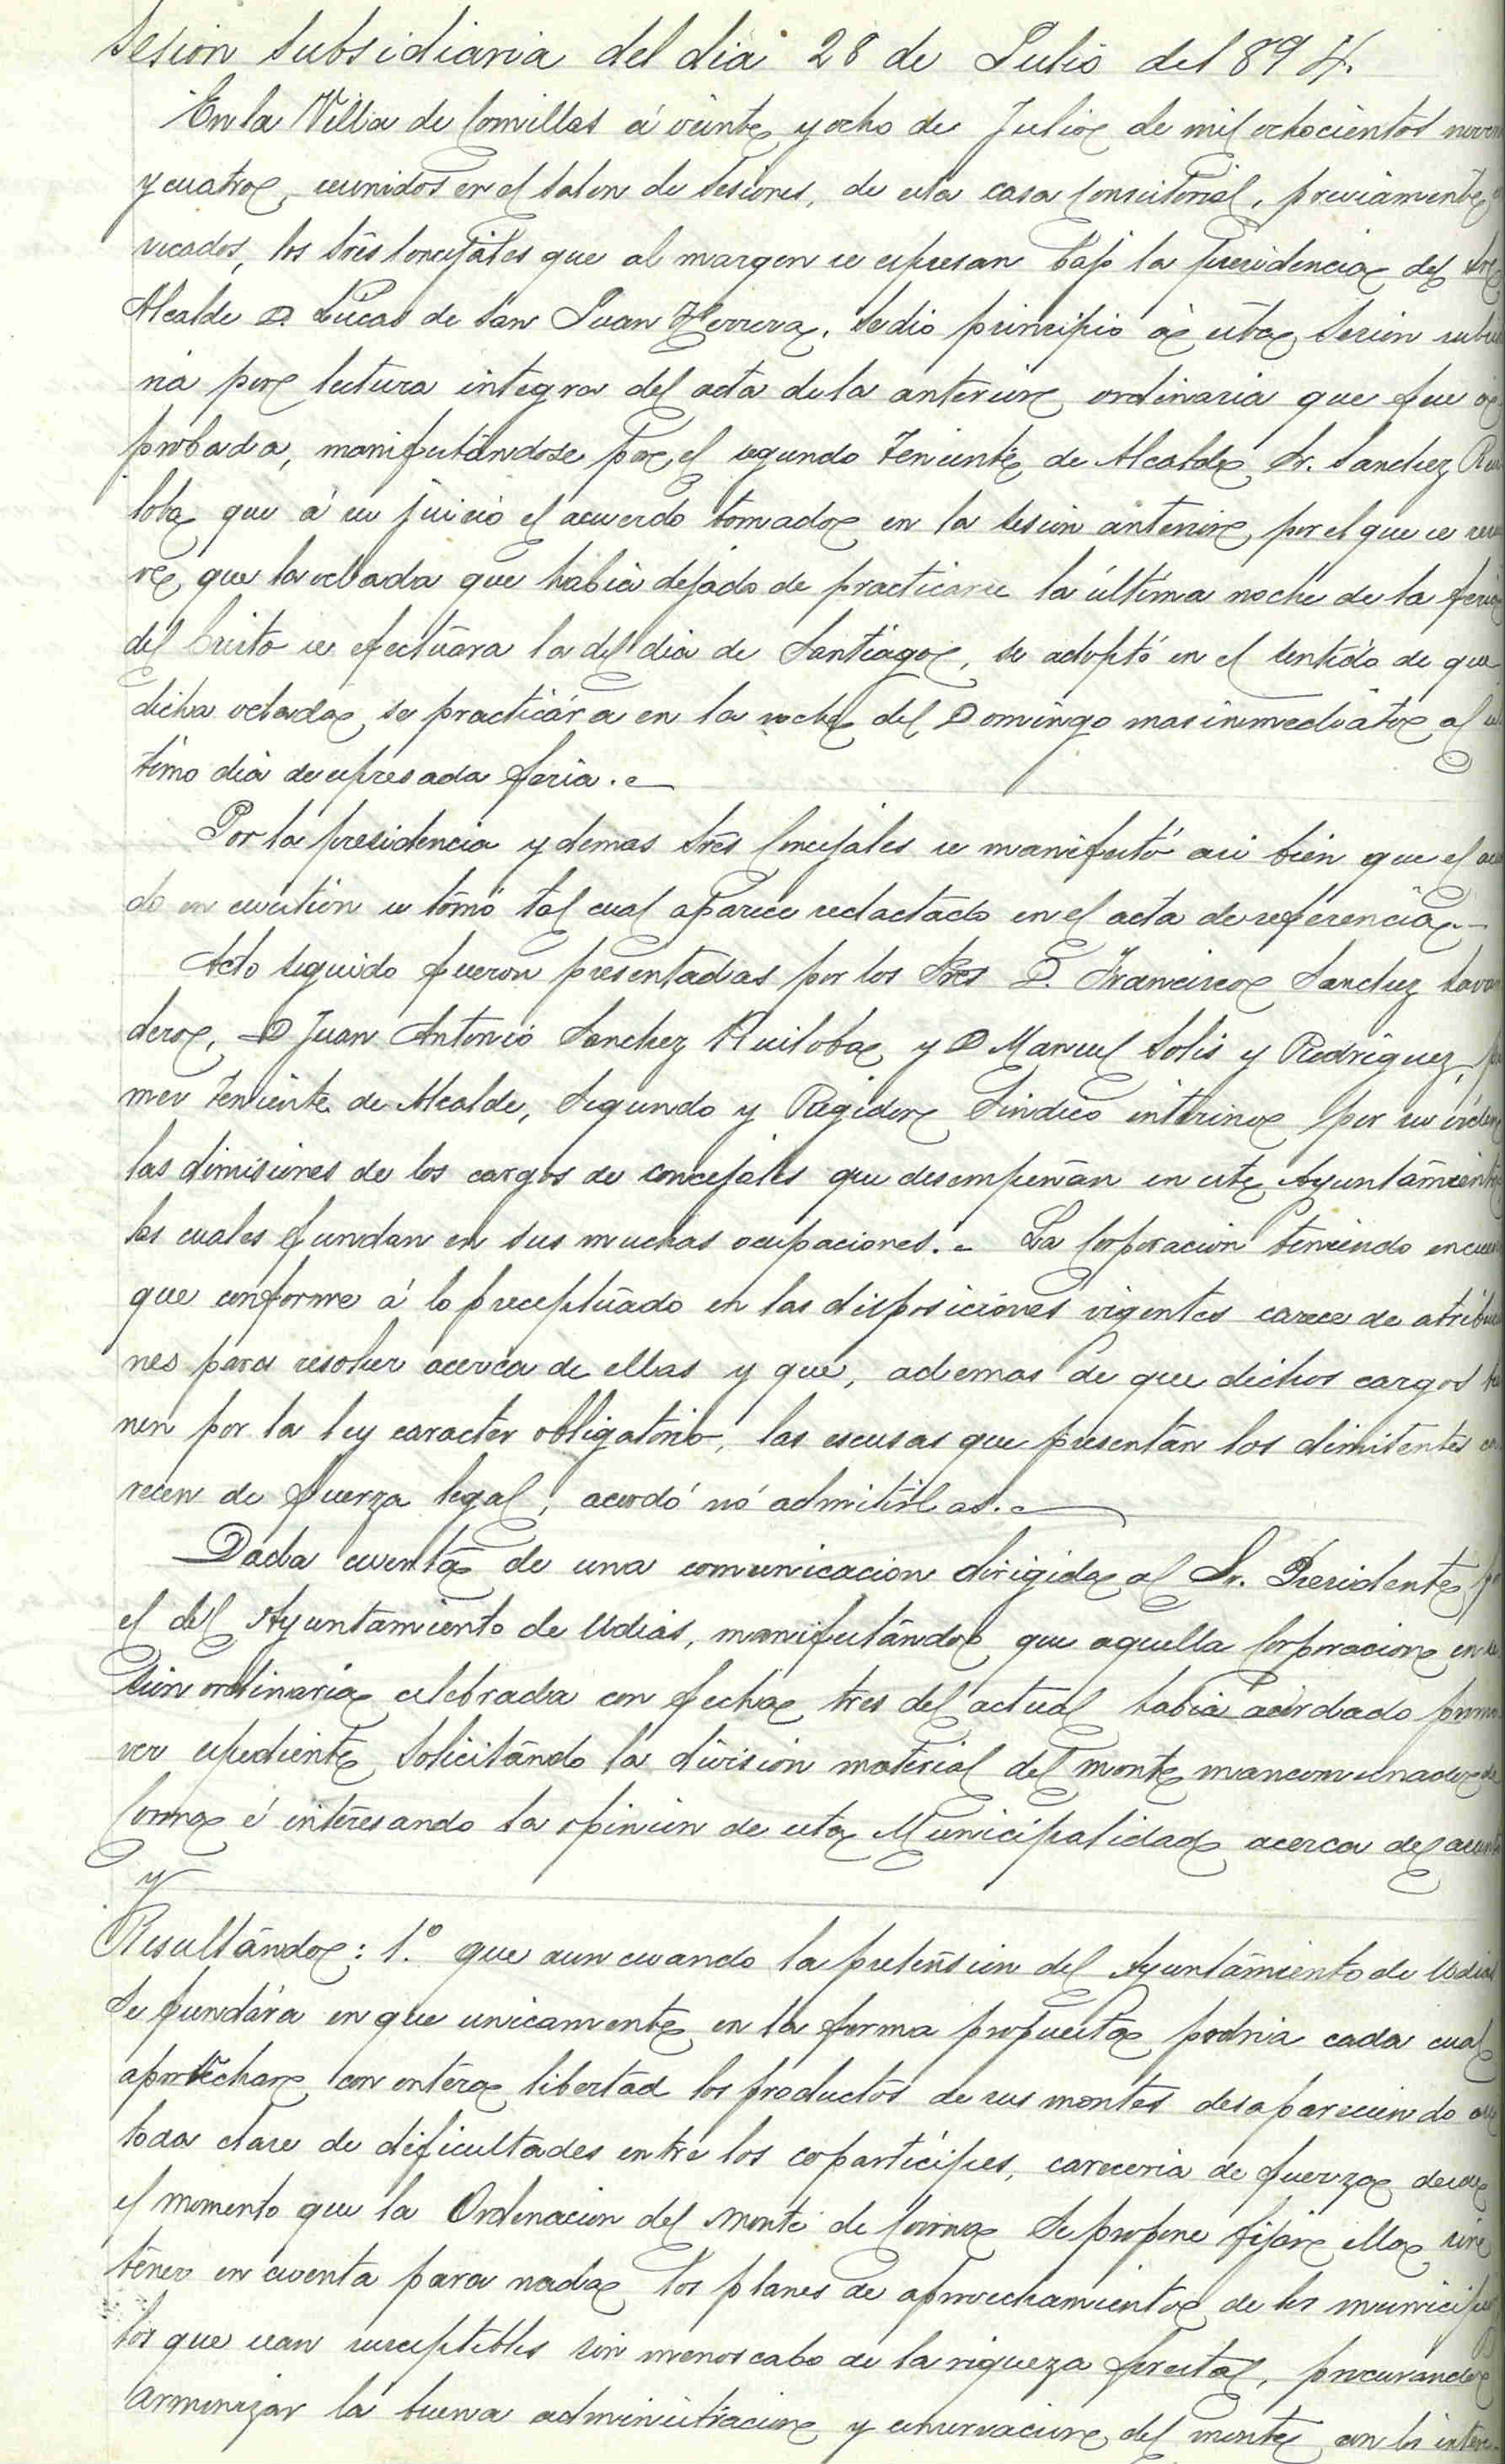 Sesion Subsidiaria del dia 28 de Julio del 894.
En la Villa de Comillas á veinte y ocho de Julio de mil ochocientos noven
y cuatro, reunidos en el Salon de Sesiones, de esta casa Consistorial, previamente
vocados, los Sres Concejales que al margen se espresan bajo la presidencia del Sr
Alcalde D. Lucas de San Juan Herrera. Se dió principio á esta Sesion subsi
ria por lectura integra del acta de la anterior ordinaria que fue a
probada, manifestándose por el segundo Teniente de Alcalde Sr. Sanchez Rui
loba que á su juicio el acuerdo tomado en la sesion anterior, por el que se
re, que la velada que habia dejado de practicarse la última noche de la feria
del Cristo se efectuara la del dia de Santiago, se adoptó en el sentido de que
dicha velada se practicára en la noche del Domingo mas inmediato al úl
timo dia de espresada feria.
Por la presidencia y demas Sres Concejales se manifestó asi bien que el acu
do en cuestión se tomó tal cual aparece redactado en el acta de referencia.
Acto seguido fueron presentadas por los Sres D. Francisco Sanchez Lava
dero, D Juan Antonio Sanchez Ruiloba y D Manuel Solis y Rodriguez, pri
mer Teniente de Alcalde, Segundo y Regidor Sindico interino por su órden
las dimisiones de los cargos de concejales que desempeñan en este Ayuntamiento
las cuales fundan en sus muchas ocupaciones. La Corporacion teniendo en cuen
que conforme á lo preceptuado en las disposiciones vigentes carece de atribucio
nes para resolver acerca de ellas y que, ademas de que dichos cargos tie
nen por la ley caracter obligatorio, las escusas que presentan los dimitentes ca
recen de fuerza legal, acordó nó admitirlas.
Dada cuenta de una comunicacion dirigida al Sr. Presidente por
el del Ayuntamiento de Udias, manifestándo que aquella Corporacion en se
sion ordinaria celebrada con fecha tres del actual habia acordado promo
ver espediente solicitándo la division material del monte mancomunado de
Corona é interesando la opinion de esta Municipalidad acerca del asunto
y
Resultándo: 1.º que aun cuando la pretension del Ayuntamiento de Udias
se fundára en que unicamente en la forma propuesta podria cada cual
aprovechar con entera libertad los productos de sus montes desapareciendo asi
toda clase de dificultades entre los coparticipes, careceria de fuerza desde
el momento que la Ordenacion del Monte de Corona se propone fijar ella sin
tener en cuenta para nada los planes de aprovechamiento de los municipios
los que sean suceptibles sin menoscabo de la riqueza forestal, procurando
armonizar la buena administracion y conservacion del monte con los intere